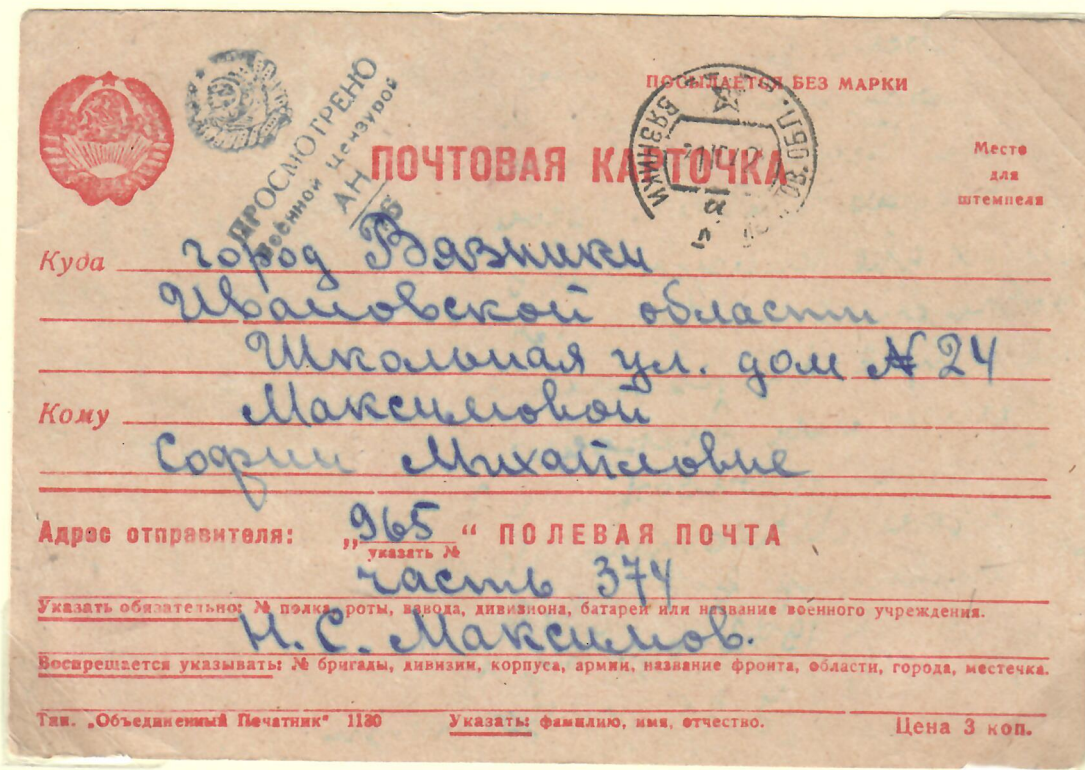 ПРОСМОТРЕНО
Военной Цензурой
АН
ПОСЫЛАЕТСЯ БЕЗ МАРКИ
ВЯЗНИКИ
ОБЛ.
ПОЧТОВАЯ КАРТОЧКА
Место
для
штемпеля
Куда город Вязники
Ивановской области
Школьная ул. дом № 24
Кому Максимовой
Софии Михайловне
Адрес отправителя: „965“ ПОЛЕВАЯ ПОЧТА
указать №
часть 374
Указать обязательно: № полка, роты, взвода, дивизиона, батареи или название военного учреждения.
Н. С. Максимов.
Воспрещается указывать: № бригады, дивизии, корпуса, армии, название фронта, области, города, местечка.
Тип. „Объединенный Печатник“ 1130 Указать: фамилию, имя, отчество. Цена 3 коп.